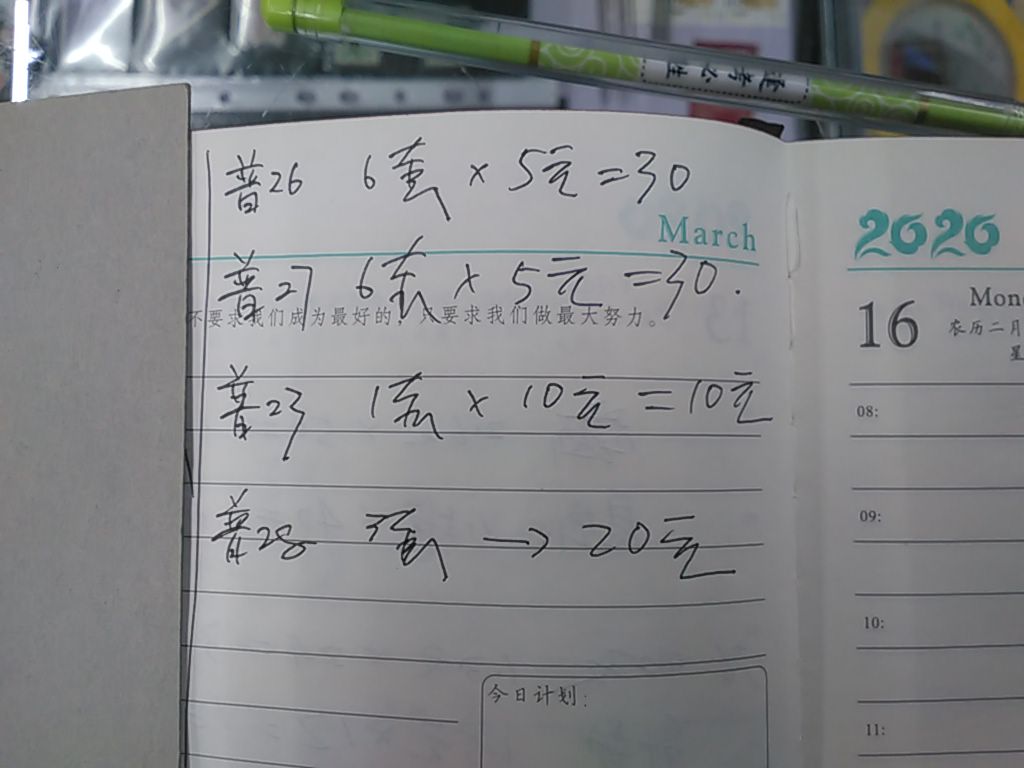 逢考必过
普26 6套 × 5元 = 30
March
普27 6套 × 5元 = 30.
不要求我们成为最好的,只要求我们做最大努力。
普23 1套 × 10元 = 10元
普28 3套 → 20元
今日计划:
2020
16
农历二月
星
08:
09:
10:
11: